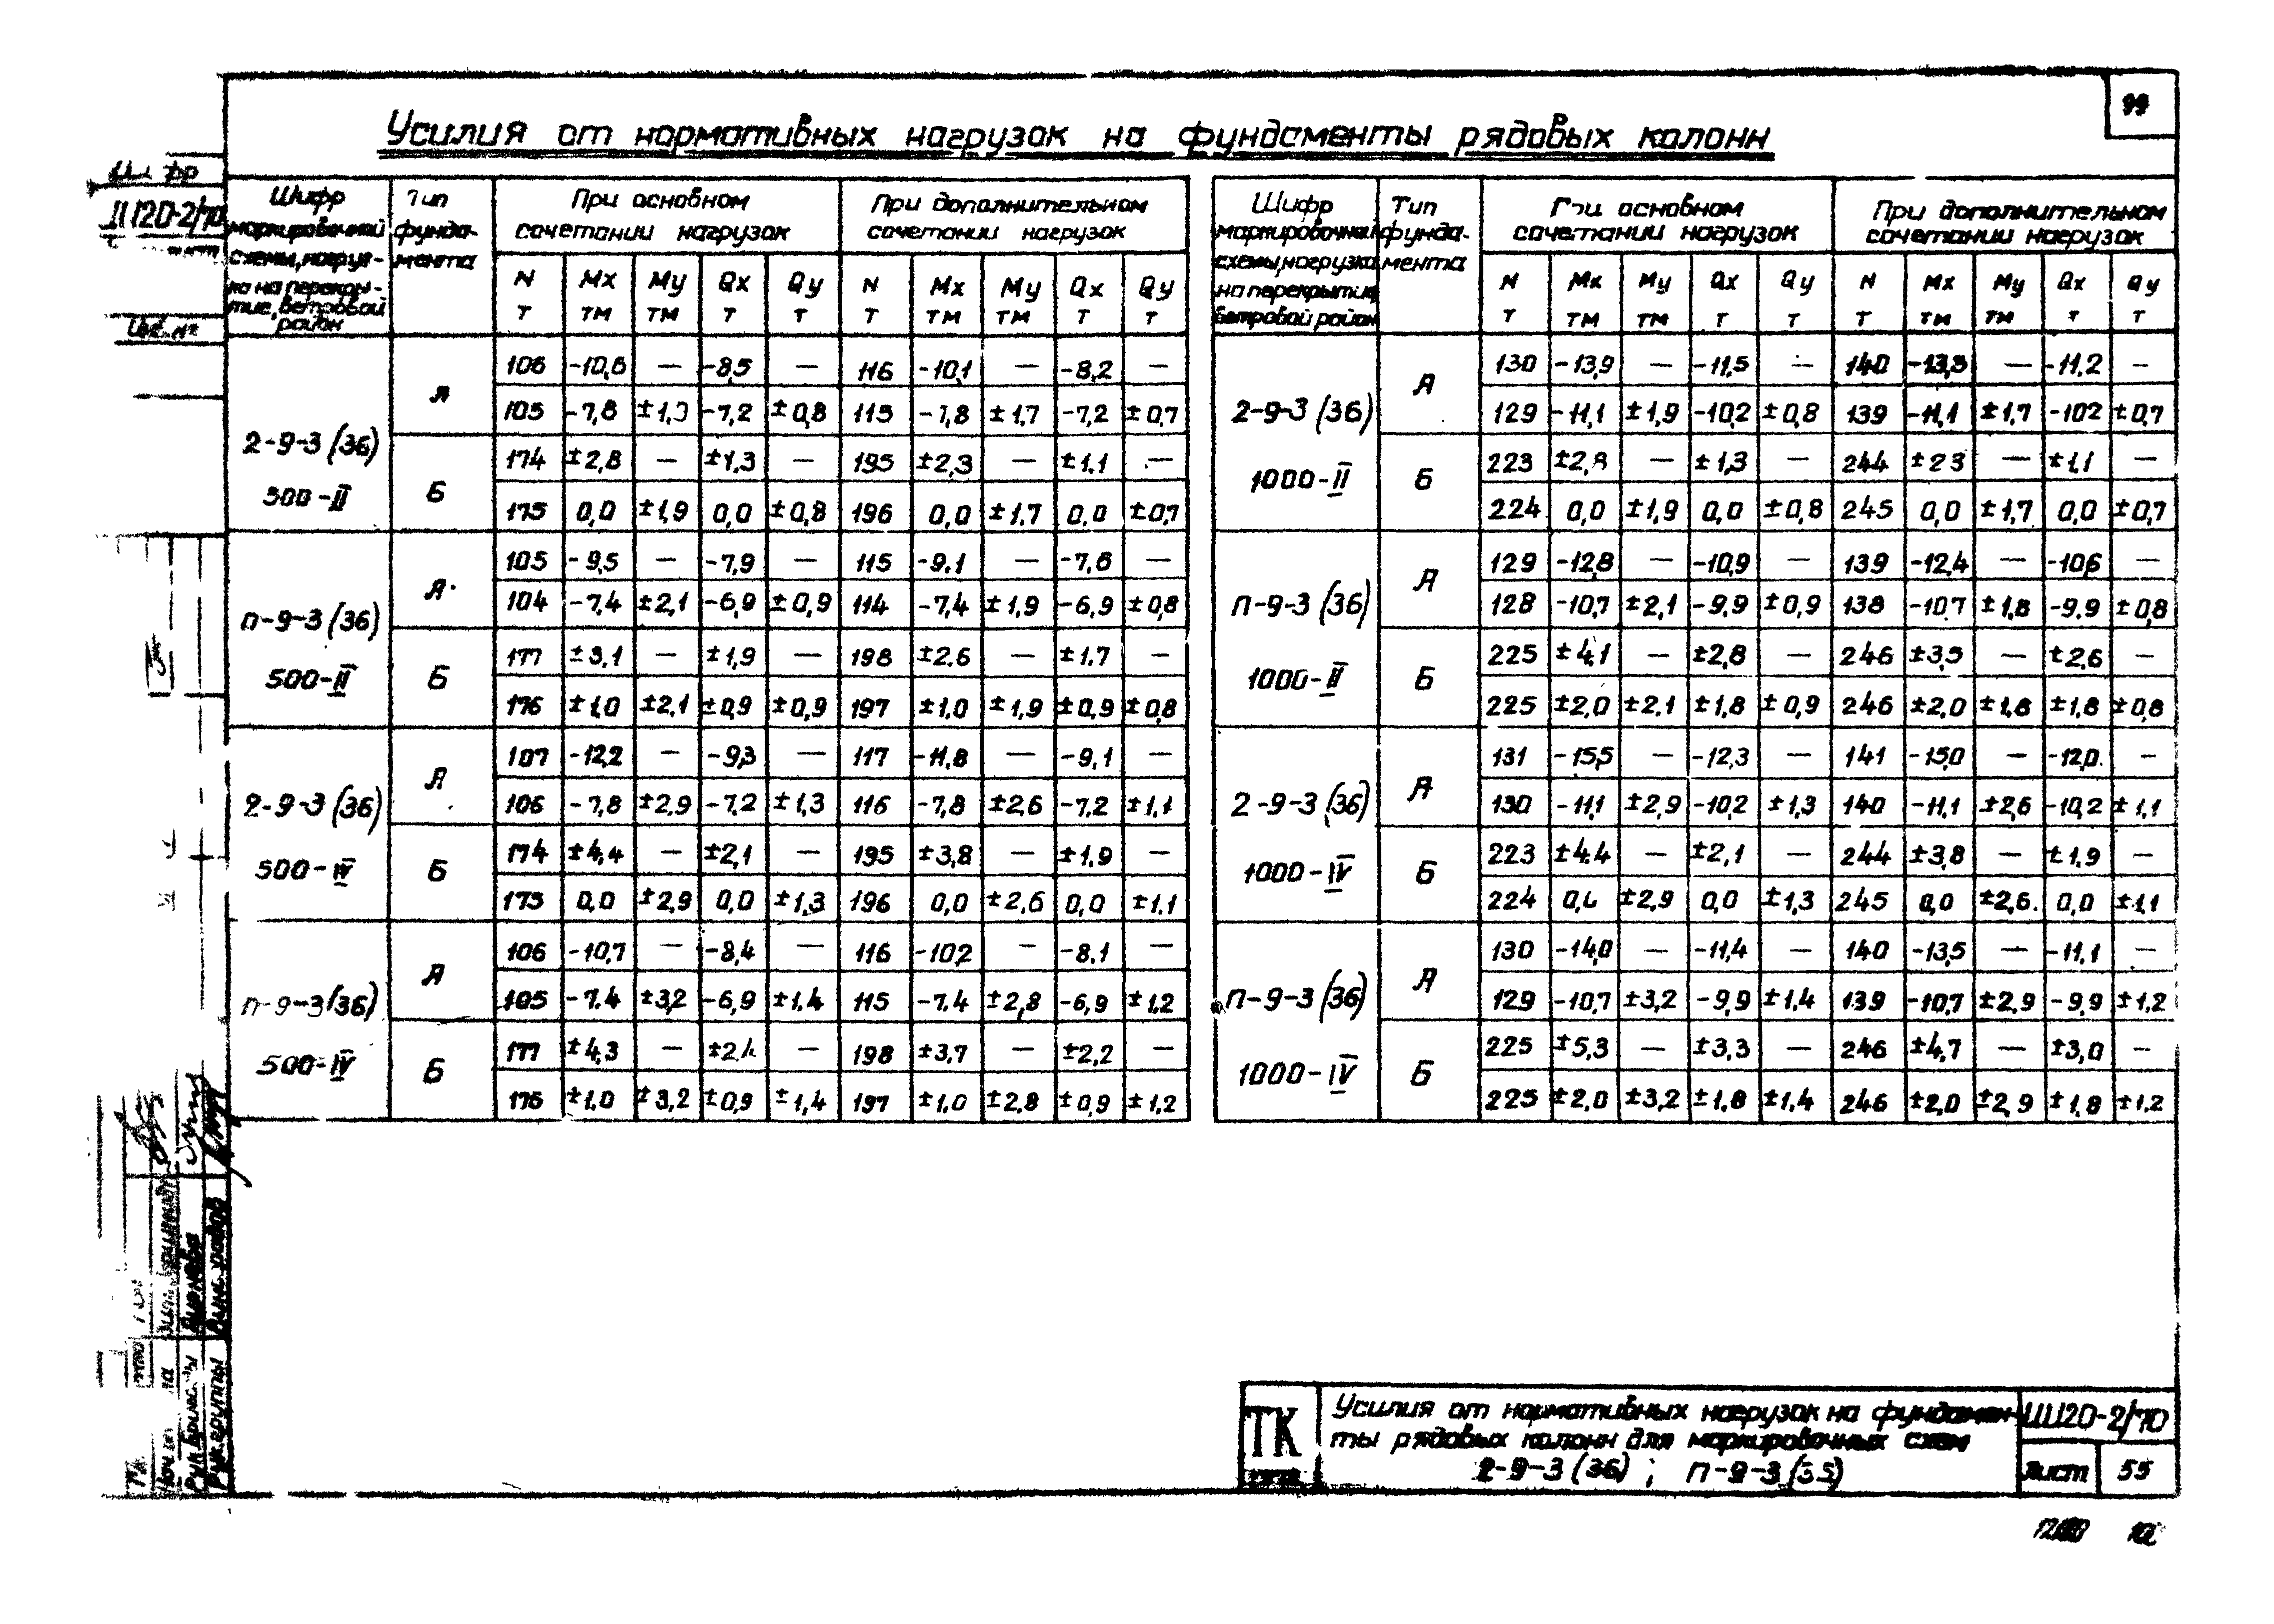 99
Усилия от нормативных нагрузок на фундаменты рядовых колонн
Шифр маркировочной схемы, нагруз- ка на перекры- тие, ветровой район | Тип фунда- мента | При основном сочетании нагрузок | При дополнительном сочетании нагрузок
N т | Mx тм | My тм | Qx т | Qy т | N т | Mx тм | My тм | Qx т | Qy т
2-9-3 (36) 500-II
А
106 -10,6 — -8,5 — 116 -10,1 — -8,2 —
105 -7,8 ±1,9 -7,2 ±0,8 115 -7,8 ±1,7 -7,2 ±0,7
Б
174 ±2,8 — ±1,3 — 195 ±2,3 — ±1,1 —
175 0,0 ±1,9 0,0 ±0,8 196 0,0 ±1,7 0,0 ±0,7
п-9-3 (36) 500-II
А
105 -9,5 — -7,9 — 115 -9,1 — -7,6 —
104 -7,4 ±2,1 -6,9 ±0,9 114 -7,4 ±1,9 -6,9 ±0,8
Б
177 ±3,1 — ±1,9 — 198 ±2,6 — ±1,7 —
176 ±1,0 ±2,1 ±0,9 ±0,9 197 ±1,0 ±1,9 ±0,9 ±0,8
2-9-3 (36) 500-IV
А
107 -12,2 — -9,3 — 117 -11,8 — -9,1 —
106 -7,8 ±2,9 -7,2 ±1,3 116 -7,8 ±2,6 -7,2 ±1,1
Б
174 ±4,4 — ±2,1 — 195 ±3,8 — ±1,9 —
175 0,0 ±2,9 0,0 ±1,3 196 0,0 ±2,6 0,0 ±1,1
п-9-3 (36) 500-IV
А
106 -10,7 — -8,4 — 116 -10,2 — -8,1 —
105 -7,4 ±3,2 -6,9 ±1,4 115 -7,4 ±2,8 -6,9 ±1,2
Б
177 ±4,3 — ±2,4 — 198 ±3,7 — ±2,2 —
176 ±1,0 ±3,2 ±0,9 ±1,4 197 ±1,0 ±2,8 ±0,9 ±1,2
Шифр маркировочной схемы, нагрузка на перекрытие, ветровой район | Тип фунда- мента | При основном сочетании нагрузок | При дополнительном сочетании нагрузок
N т | Mx тм | My тм | Qx т | Qy т | N т | Mx тм | My тм | Qx т | Qy т
2-9-3 (36) 1000-II
А
130 -13,9 — -11,5 — 140 -13,3 — -11,2 —
129 -11,1 ±1,9 -10,2 ±0,8 139 -11,1 ±1,7 -102 ±0,7
Б
223 ±2,8 — ±1,3 — 244 ±23 — ±1,1 —
224 0,0 ±1,9 0,0 ±0,8 245 0,0 ±1,7 0,0 ±0,7
п-9-3 (36) 1000-II
А
129 -12,8 — -10,9 — 139 -12,4 — -10,6 —
128 -10,7 ±2,1 -9,9 ±0,9 138 -10,7 ±1,8 -9,9 ±0,8
Б
225 ±4,1 — ±2,8 — 246 ±3,5 — ±2,6 —
225 ±2,0 ±2,1 ±1,8 ±0,9 246 ±2,0 ±1,8 ±1,8 ±0,8
2-9-3 (36) 1000-IV
А
131 -15,5 — -12,3 — 141 -15,0 — -12,0 —
130 -11,1 ±2,9 -10,2 ±1,3 140 -11,1 ±2,6 -10,2 ±1,1
Б
223 ±4,4 — ±2,1 — 244 ±3,8 — ±1,9 —
224 0,0 ±2,9 0,0 ±1,3 245 0,0 ±2,6 0,0 ±1,1
п-9-3 (36) 1000-IV
А
130 -14,0 — -11,4 — 140 -13,5 — -11,1 —
129 -10,7 ±3,2 -9,9 ±1,4 139 -10,7 ±2,9 -9,9 ±1,2
Б
225 ±5,3 — ±3,3 — 246 ±4,7 — ±3,0 —
225 ±2,0 ±3,2 ±1,8 ±1,4 246 ±2,0 ±2,9 ±1,8 ±1,2
ТК
Усилия от нормативных нагрузок на фундамен-
ты рядовых колонн для маркировочных схем
2-9-3 (36) ; п-9-3 (36)
ИИ20-2/70
Лист 55
Рук. группы